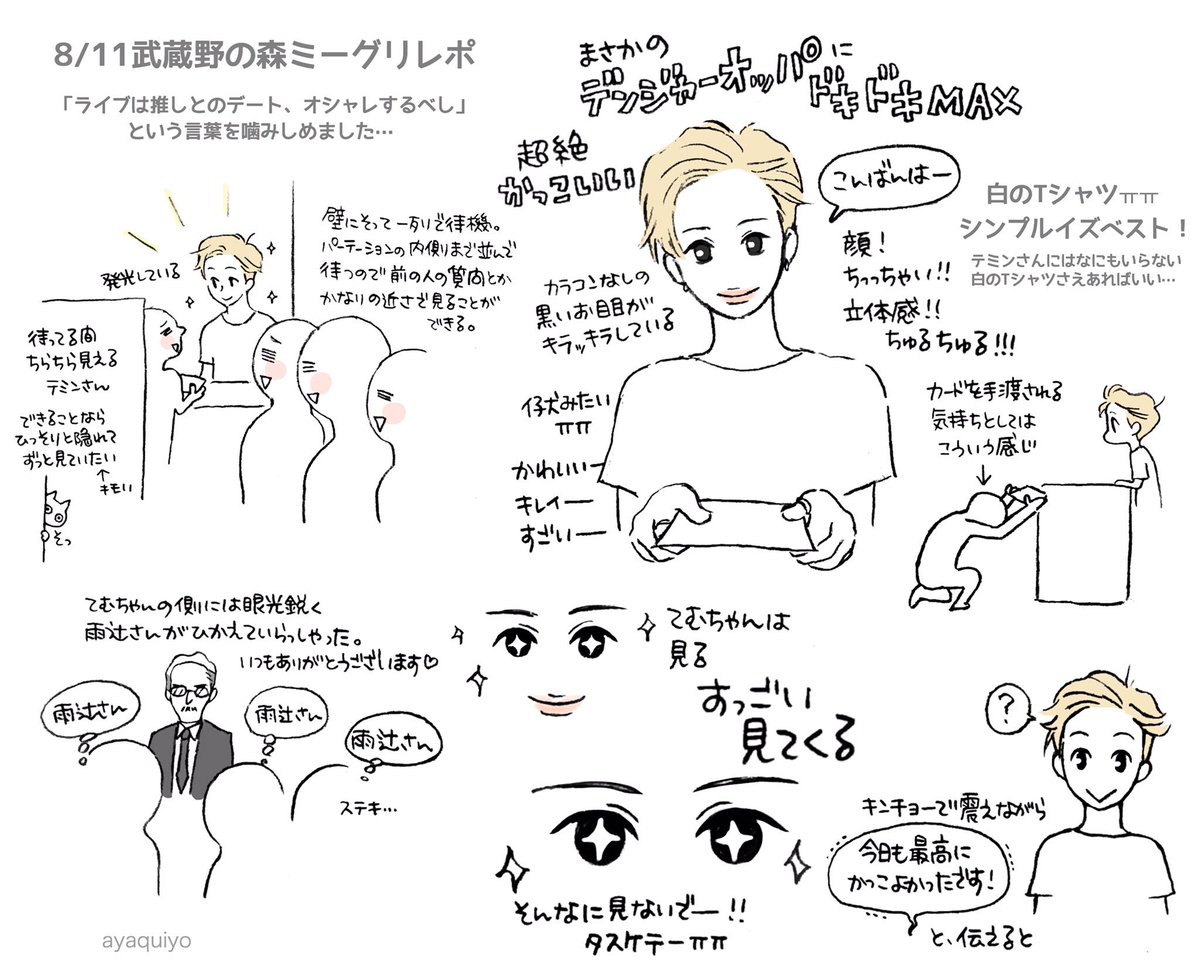 8/11武蔵野の森ミーグリレポ
「ライブは推しとのデート、オシャレするべし」
という言葉を噛みしめました…
発光している
壁にそって一列で待機。
パーテーションの内側まで並んで
待つので前の人の質問とか
かなりの近さで見ることが
できる。
待ってる間
ちらちら見える
テミンさん
できることなら
ひっそりと隠れて
ずっと見ていたい
↑
キモい
そっ
まさかの
デンジャーオッパに
ドキドキMAX
超絶
かっこいい
こんばんはー
カラコンなしの
黒いお目目が
キラッキラしている
仔犬みたい
ㅠㅠ
かわいいー
キレイー
すごいー
顔!
ちっっちゃい!!
立体感!!
ちゅるちゅる!!!
白のTシャツㅠㅠ
シンプルイズベスト!
テミンさんにはなにもいらない
白のTシャツさえあればいい…
カードを手渡される
気持ちとしては
こういう感じ
↓
てむちゃんの側には眼光鋭く
雨辻さんがひかえていらっしゃった。
いつもありがとうございます♡
雨辻さん
雨辻さん
雨辻さん
ステキ…
てむちゃんは
見る
すっごい
見てくる
そんなに見ないでー!!
タスケテーㅠㅠ
?
キンチョーで震えながら
今日も最高に
かっこよかったです!
と、伝えると
ayaquiyo